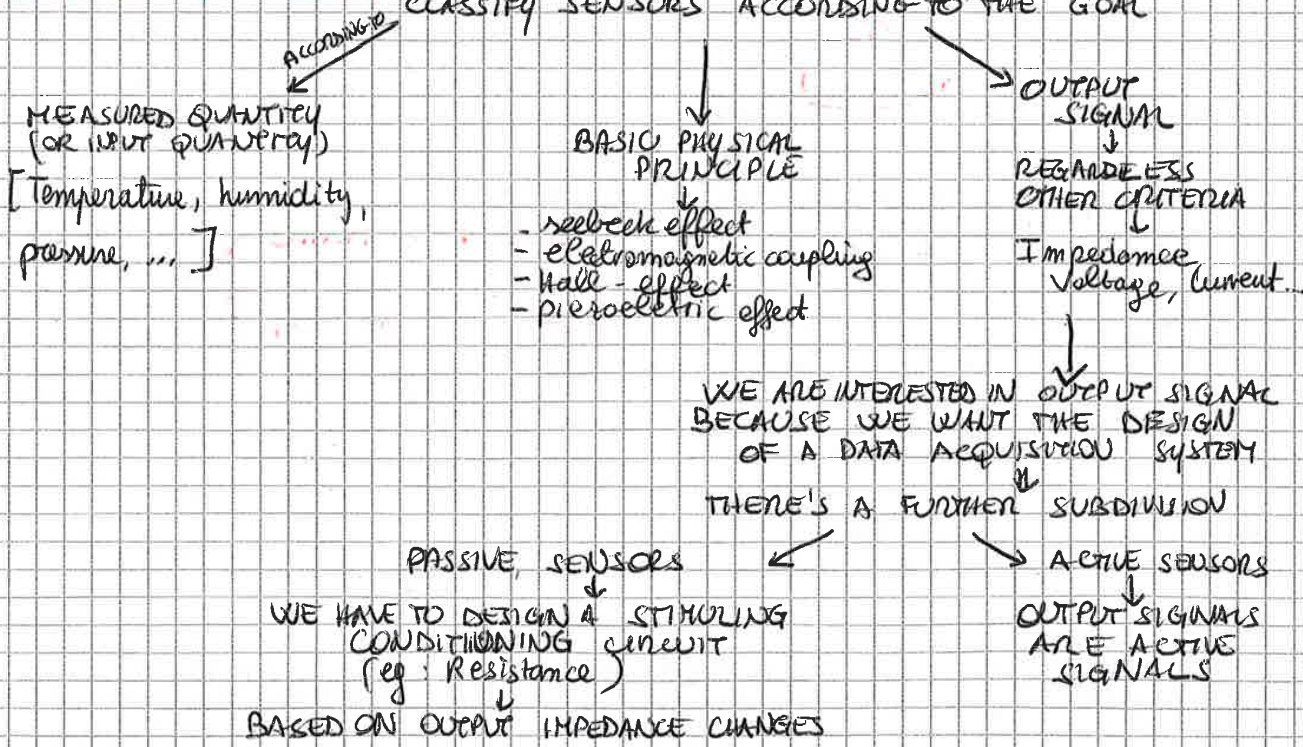 CLASSIFY SENSORS ACCORDING TO THE GOAL
ACCORDING TO
MEASURED QUANTITY
(OR INPUT QUANTITY)
[Temperature, humidity,
pressure, ...]
BASIC PHYSICAL
PRINCIPLE
- seebeck effect
- eletromagnetic coupling
- Hall - effect
- piezoeletric effect
OUTPUT
SIGNAL
REGARDELESS
OTHER CRITERIA
Impedance
Voltage, Current...
WE ARE INTERESTED IN OUTPUT SIGNAL
BECAUSE WE WANT THE DESIGN
OF A DATA ACQUISITION SYSTEM
THERE'S A FURTHER SUBDIVISION
PASSIVE SENSORS
WE HAVE TO DESIGN A STIMULING
CONDITIONING CIRCUIT
(eg: Resistance)
BASED ON OUTPUT IMPEDANCE CHANGES
ACTIVE SENSORS
OUTPUT SIGNALS
ARE ACTIVE
SIGNALS